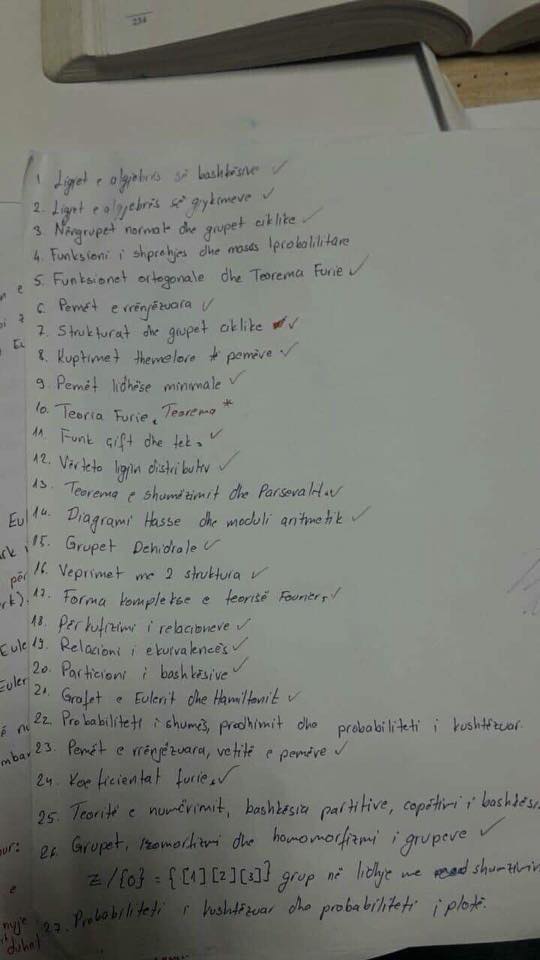 234
1. Ligjet e algjebrës së bashkësive ✓
2. Ligjet e algjebrës së gjykimeve ✓
3. Nëngrupet normale dhe grupet ciklike ✓
4. Funksioni i shprehjes dhe masës probabilitare
5. Funksionet ortogonale dhe Teorema Furie ✓
6. Pemët e rrënjëzuara ✓
7. Strukturat dhe grupet ciklike ✓
8. Kuptimet themelore * pemëve ✓
9. Pemët lidhëse minimale ✓
10. Teoria Furie, Teorema *
11. Funk çift dhe tek, ✓
12. Vërteto ligjin distributiv ✓
13. Teorema e shumëzimit dhe Parsevalit ✓
14. Diagrami Hasse dhe moduli aritmetik ✓
15. Grupet Dehidrale ✓
16. Veprimet me 2 struktura ✓
17. Forma komplekse e teorisë Fourier, ✓
18. Përkufizimi i relacioneve ✓
19. Relacioni i ekuivalencës ✓
20. Particioni i bashkësive ✓
21. Grafet e Eulerit dhe Hamiltonit ✓
22. Probabiliteti i shumës, prodhimit dhe probabiliteti i kushtëzuar.
23. Pemët e rrënjëzuara, vetitë e pemëve ✓
24. Koeficientat furie, ✓
25. Teoritë e numërimit, bashkësia partitive, copëtimi i bashkësi
26. Grupet, Izomorfizmi dhe homomorfizmi i grupeve ✓
Z/{0} = {[1][2][3]} grup në lidhje me shumëzimin
27. Probabiliteti i kushtëzuar dhe probabiliteti i plotë.